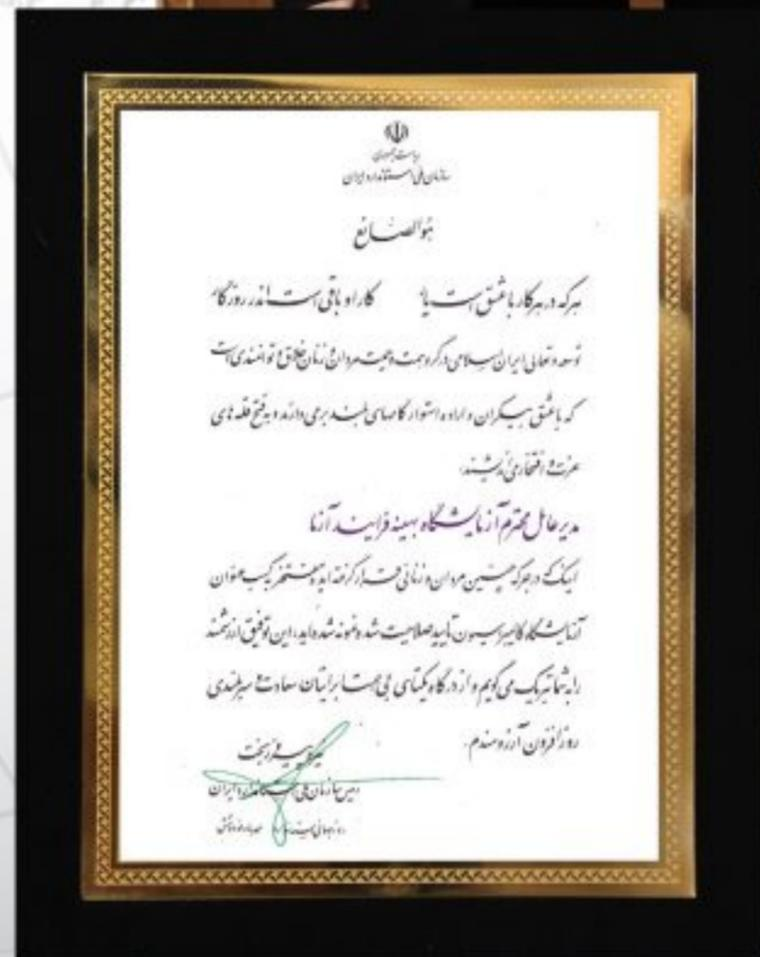 ریاست جمهوری
سازمان ملی استاندارد ایران
هوالصانع
هرکه در هرکار با عشق است یار کار او باقی است اندر روزگار
توسعه و تعالی ایران اسلامی در گرو همت و همیت مردان و زنان خلاق و توانمندی است
که با عشق بیکران و اراده استوار گامهای بلند برمی دارند و به فتح قله های
عزت و افتخار می اندیشند.
مدیرعامل محترم آزمایشگاه بهینه فرایند آزما
اینک که در جرگه چنین مردان و زنانی قرار گرفته اید و مفتخر به کسب عنوان
آزمایشگاه کالیبراسیون تایید صلاحیت شده نمونه شده اید، این توفیق ارزشمند
را به شما تبریک می گویم و از درگاه یکتای بی همتا برایتان سعادت و سربلندی
روزافزون آرزومندم.
نیره پیروزبخت
رئیس سازمان ملی استاندارد ایران
روز جهانی استاندارد